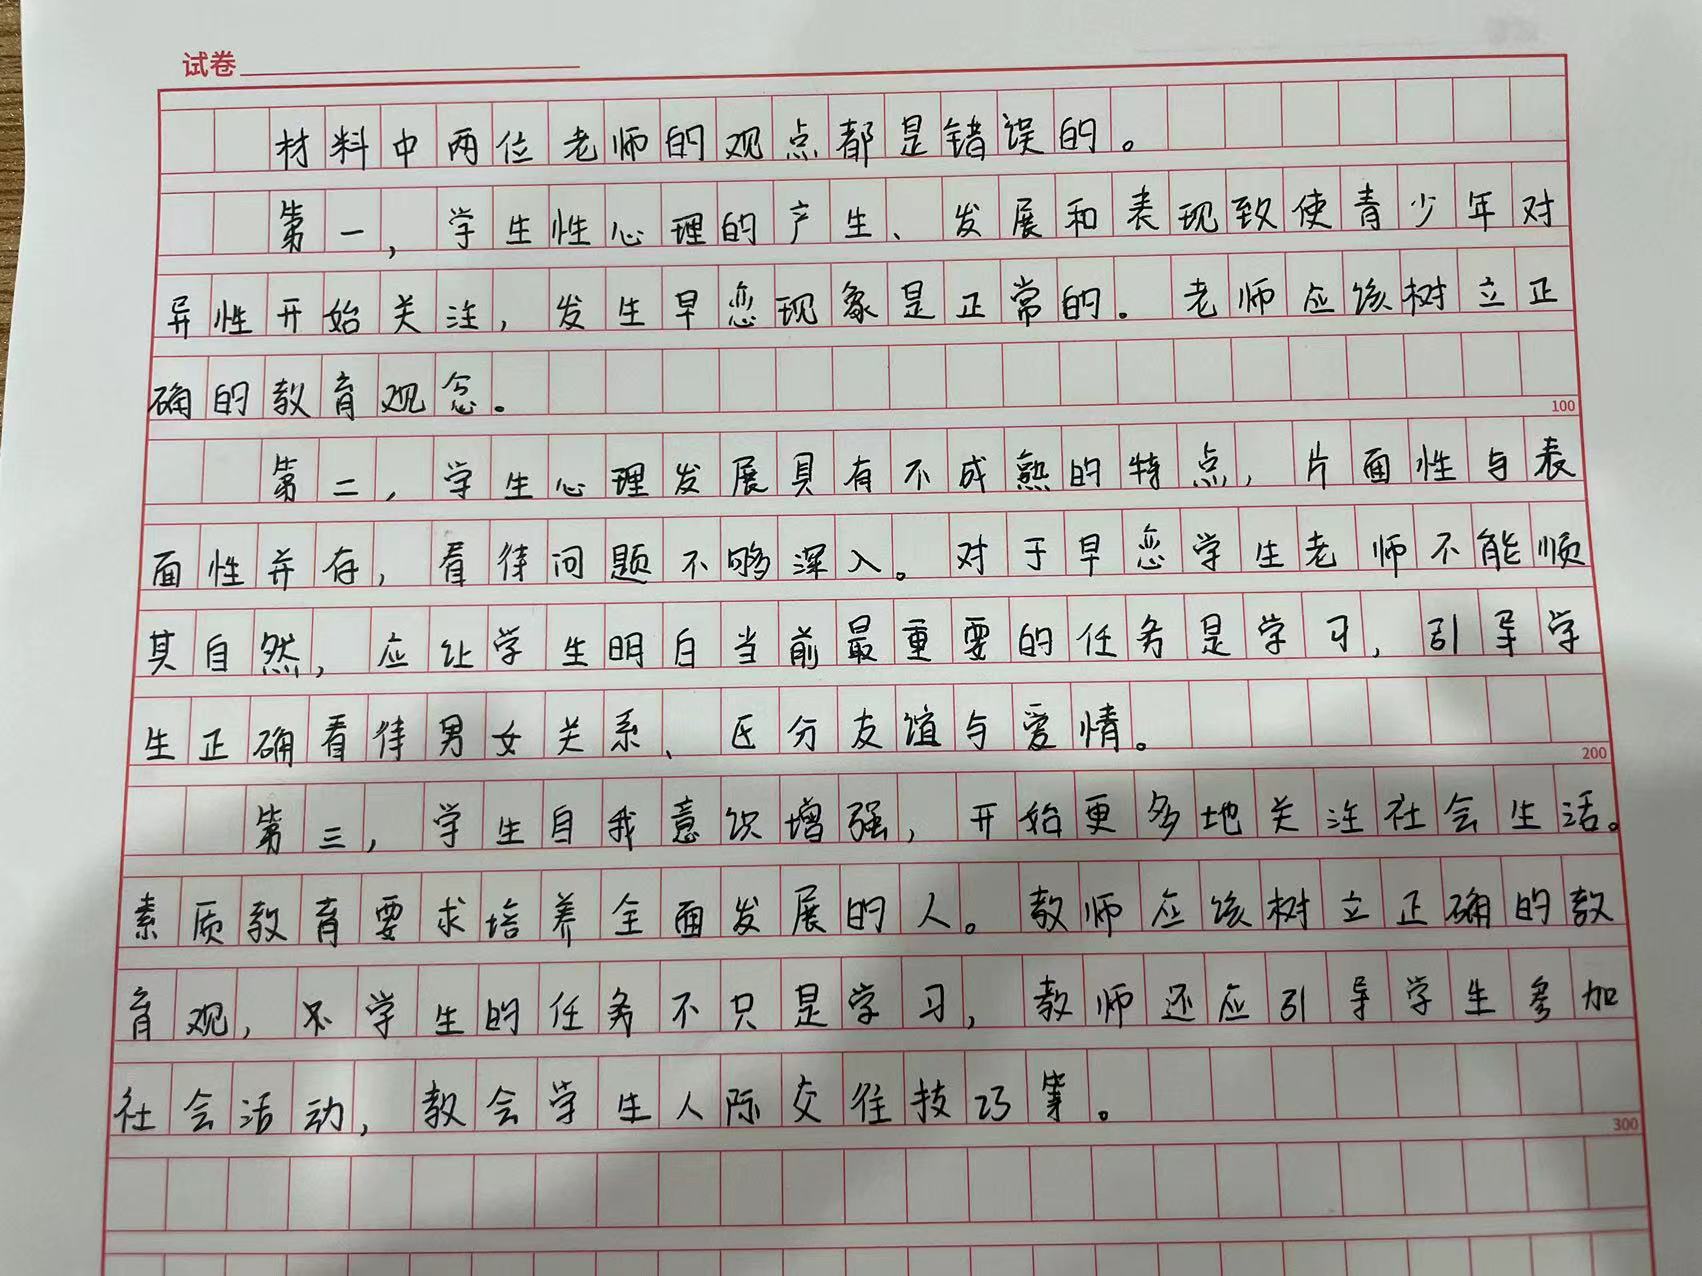 试卷
材料中两位老师的观点都是错误的。
第一，学生性心理的产生、发展和表现致使青少年对
异性开始关注，发生早恋现象是正常的。老师应该树立正
确的教育观念。
100
第二，学生心理发展具有不成熟的特点，片面性与表
面性并存，看待问题不够深入。对于早恋学生老师不能顺
其自然，应让学生明白当前最重要的任务是学习，引导学
生正确看待男女关系、区分友谊与爱情。
200
第三，学生自我意识增强，开始更多地关注社会生活。
素质教育要求培养全面发展的人。教师应该树立正确的教
育观，学生的任务不只是学习，教师还应引导学生参加
社会活动，教会学生人际交往技巧等。
300